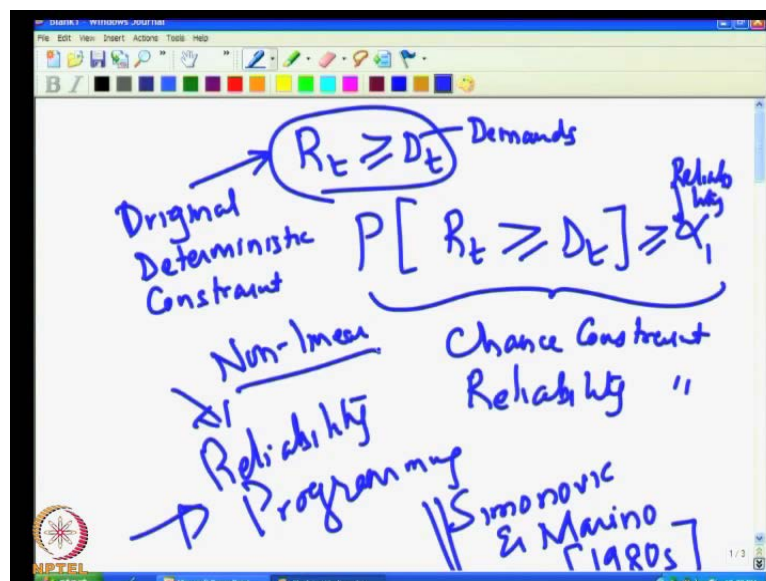 Blank1 - Windows Journal
File Edit View Insert Actions Tools Help
B I
R_t ≥ D_t — Demands
Original
Deterministic
Constraint
Reliability
P[ R_t ≥ D_t ] ≥ α_1
Chance Constraint
Reliability "
Non-linear
α_1
Reliability
Programming
Simonovic
& Marino
[1980s]
1/3
NPTEL
start